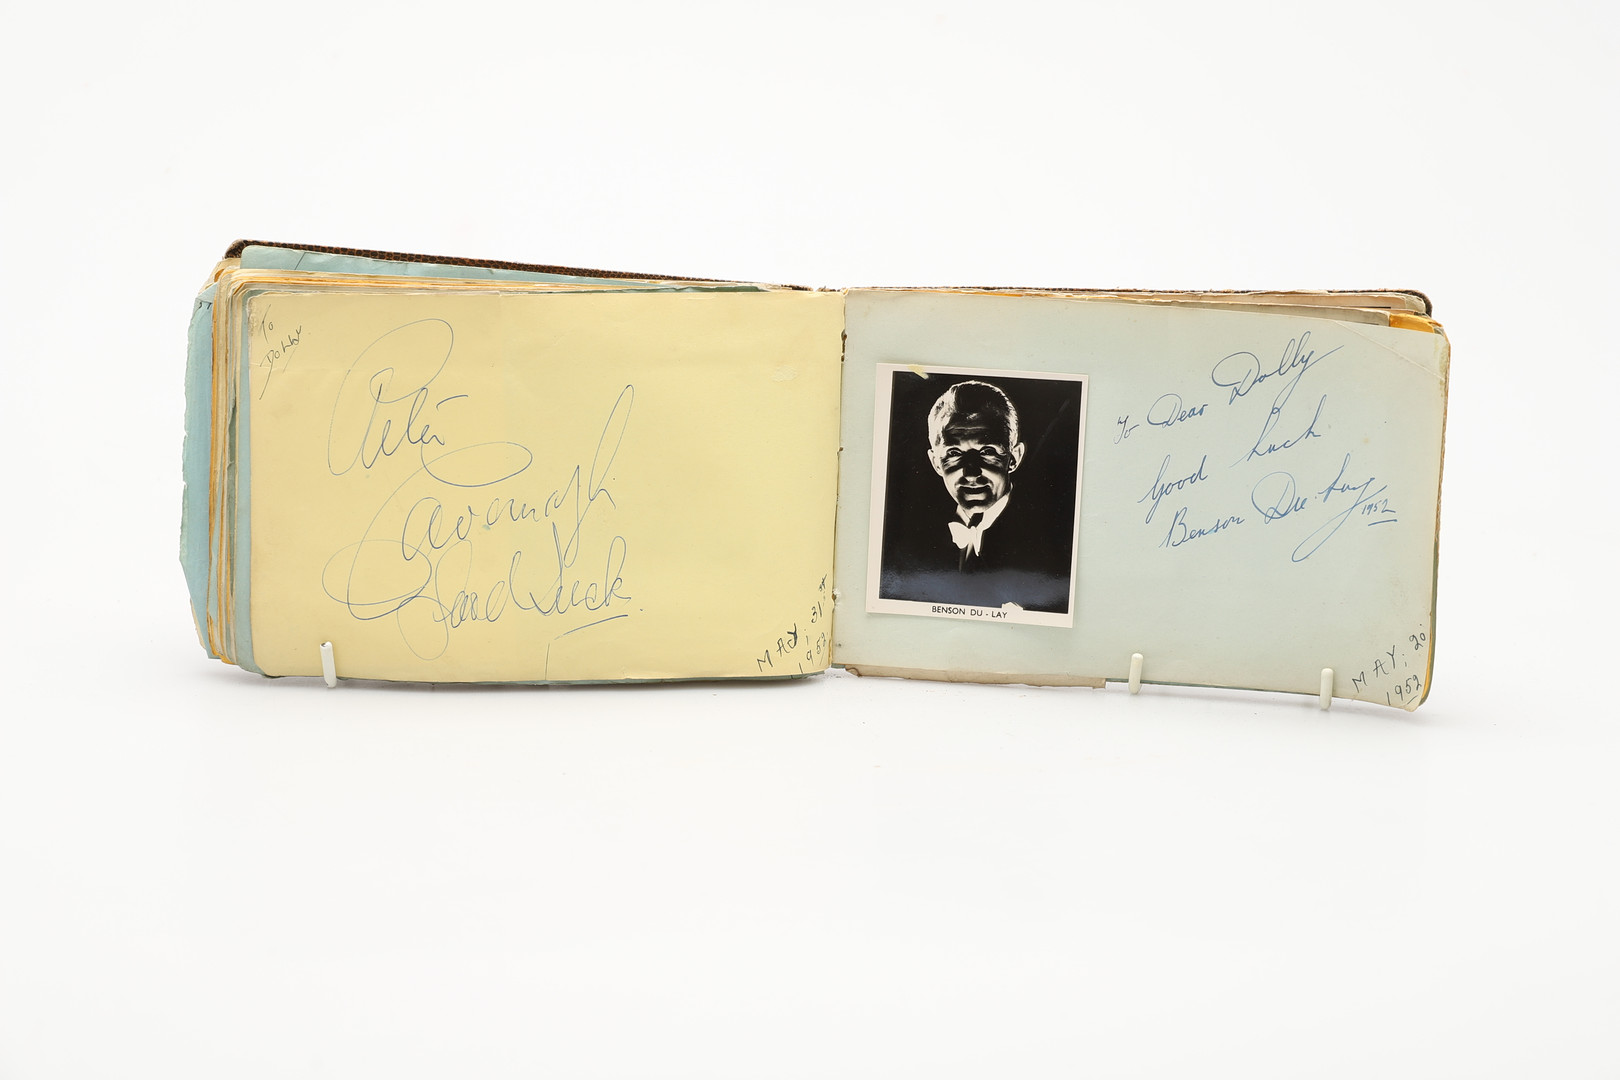 To
Dolly
Peter
Cavanagh
Good Luck.
MAY; 31st
1952
BENSON DU-LAY
To Dear Dolly
Good Luck
Benson Du-Lay
1952
MAY; 20:
1952